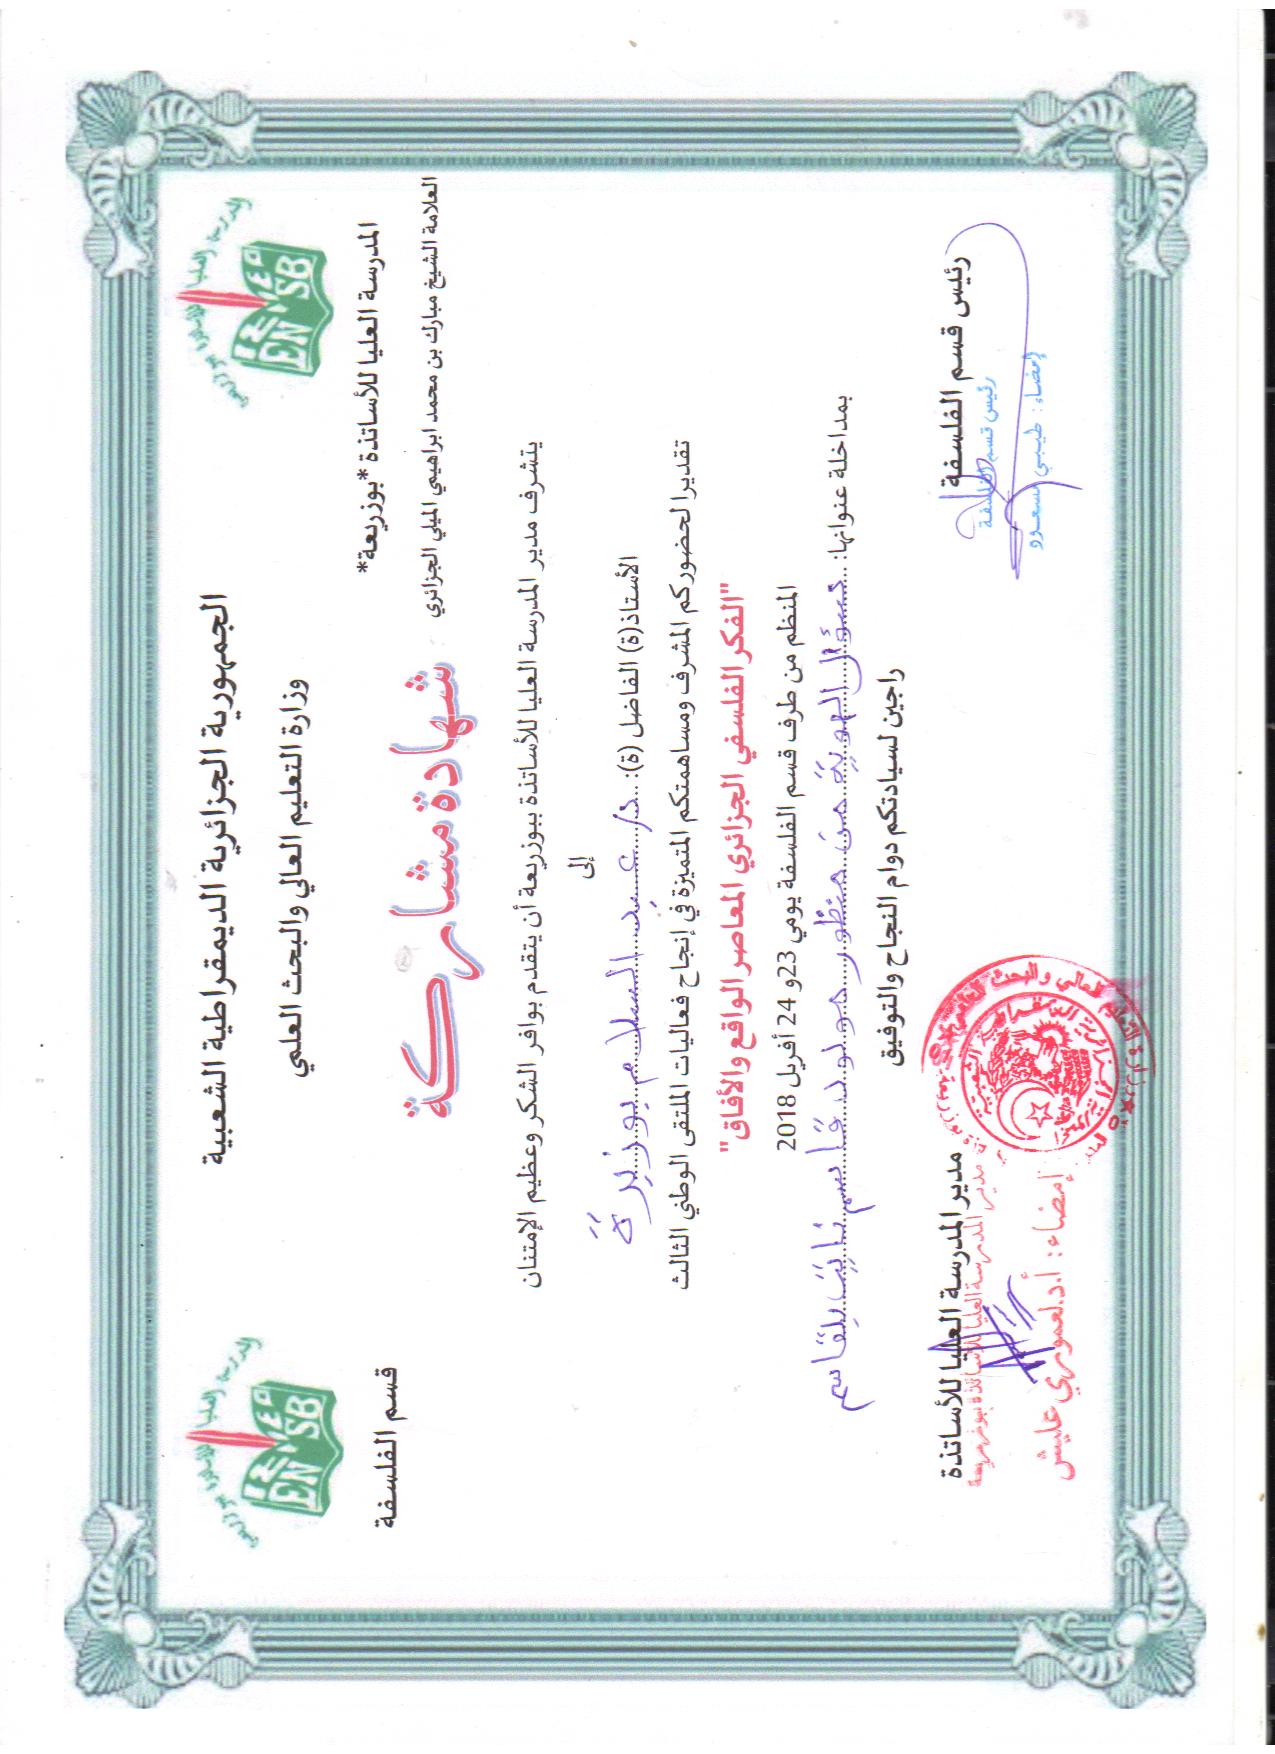 الجمهورية الجزائرية الديمقراطية الشعبية
وزارة التعليم العالي والبحث العلمي
المدرسة العليا للأساتذة *بوزريعة*
العلامة الشيخ مبارك بن محمد ابراهيمي الميلي الجزائري
قسم الفلسفة
ENSB
ENSB
شهادة مشاركة
يتشرف مدير المدرسة العليا للأساتذة ببوزريعة أن يتقدم بوافر الشكر وعظيم الإمتنان
إلى
الأستاذ(ة) الفاضل (ة): د/ عبد السلام بوزبرة
تقديرا لحضوركم المشرف ومساهمتكم المتميزة في إنجاح فعاليات الملتقى الوطني الثالث
"الفكر الفلسفي الجزائري المعاصر الواقع والأفاق"
المنظم من طرف قسم الفلسفة يومي 23و 24 أفريل 2018
بمداخلة عنوانها: سؤال الهوية من منظور مولود قاسم نايت بلقاسم
راجين لسيادتكم دوام النجاح والتوفيق
رئيس قسم الفلسفة
رئيس قسم الفلسفة
إمضاء: طيبي مسعود
مدير المدرسة العليا للأساتذة
مدير المدرسة العليا للأساتذة بوزريعة
إمضاء: أ.د.لعموري عليش